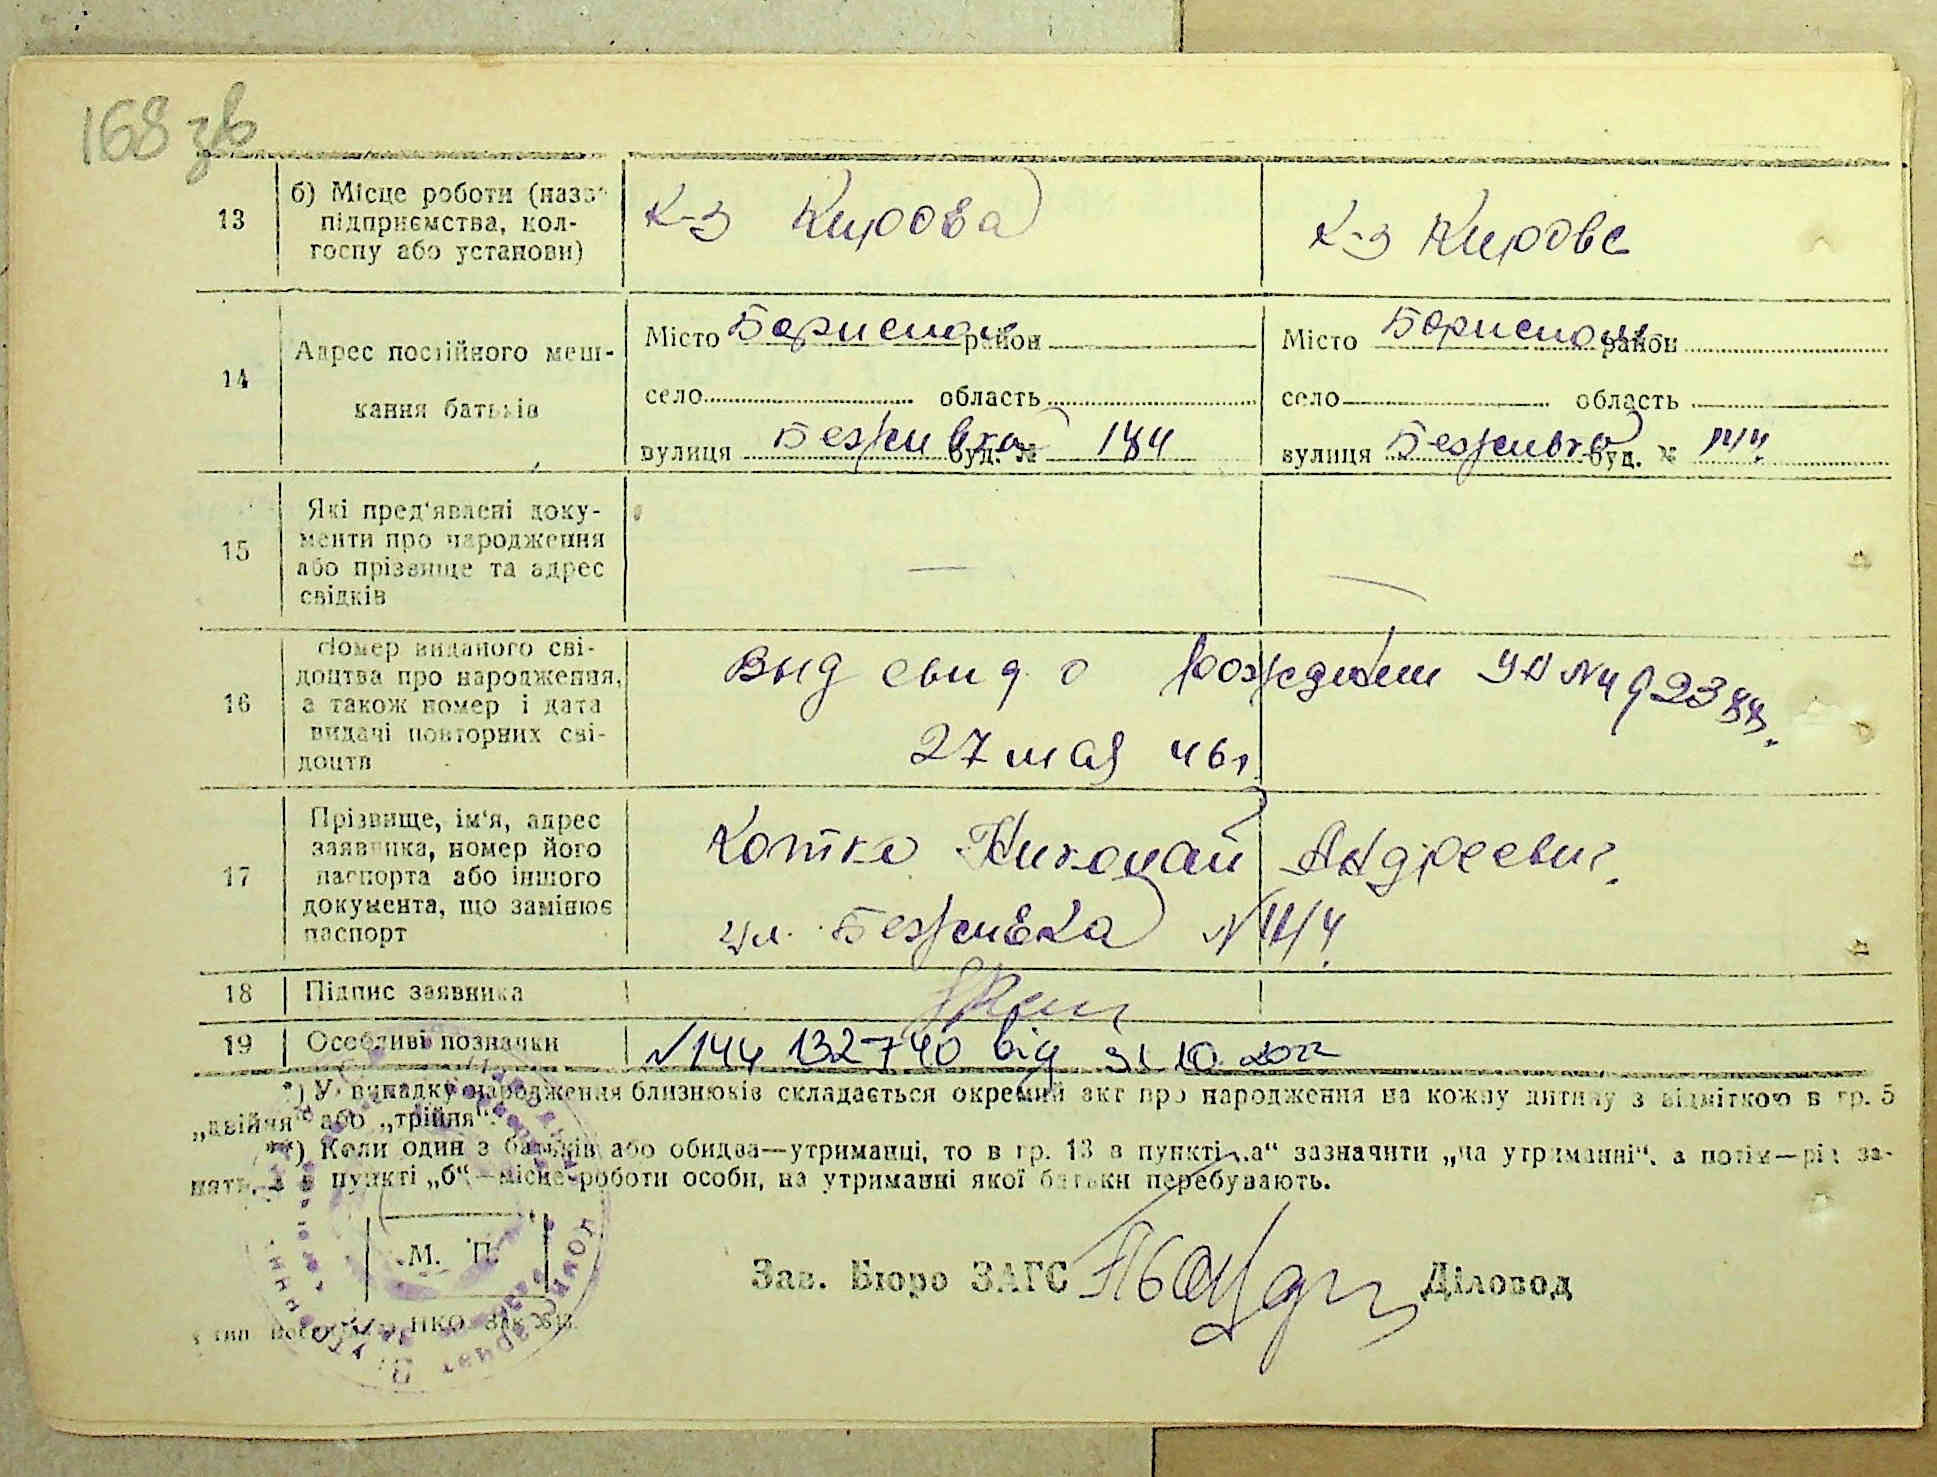 168 зв
13
б) Місце роботи (назва
підприємства, кол-
госпу або установи)
К-з Кирова
К-з Кирова
14
Адрес постійного меш-
кання батьків
Місто Бориспол район
село область
вулиця Безживка буд. № 144
Місто Бориспол район
село область
вулиця Безживка буд. № 144
15
Які пред'явлені доку-
менти про народження
або прізвище та адрес
свідків
—
—
16
Номер виданого сві-
доцтва про народження,
а також номер і дата
видачі повторних сві-
доцтв
Выд свид о рождении УА №
27 мая 46 г
17
Прізвище, ім'я, адрес
заявника, номер його
паспорта або іншого
документа, що замінює
паспорт
Котко Николай Андреевич.
ул. Безживка № 144
18
Підпис заявника
19
Особливі позначки
№144 132740 від 31.10.2022
*) У випадку народження близнюків складається окремий акт про народження на кожну дитину з відміткою в гр. 5
„двійня“ або „трійня“.
**) Коли один з батьків або обидва—утриманці, то в гр. 13 в пункті „а“ зазначити „на утриманні“, а потім—рід за-
нять, а в пункті „б“—місце роботи особи, на утриманні якої батьки перебувають.
М. П.
Зав. Бюро ЗАГС
Діловод